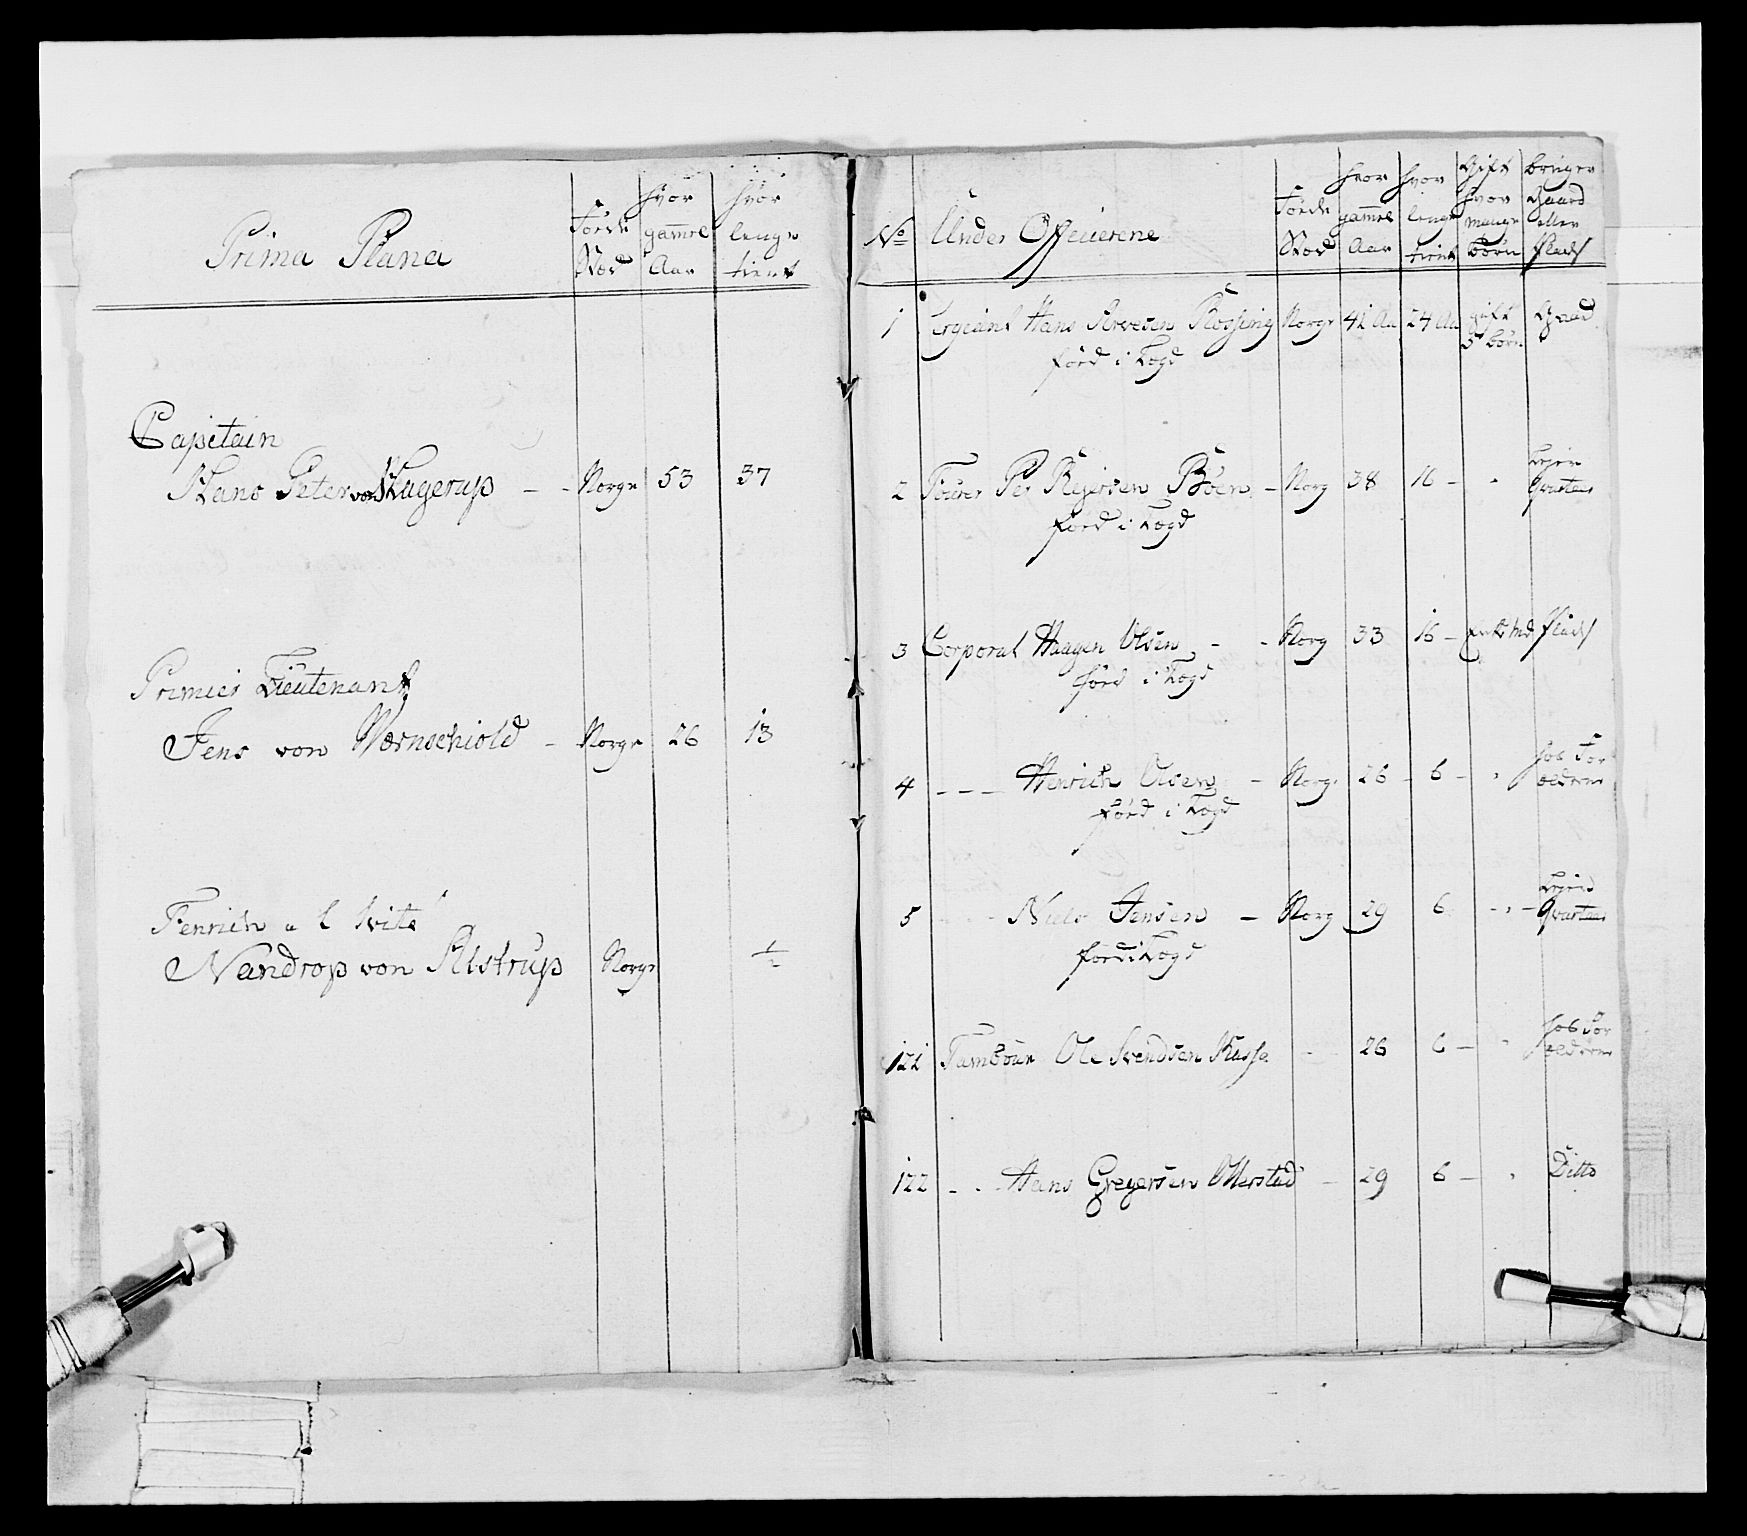 Prima Plana
Føde Sted
hvor gamel Aar
hvor lenge tient
Capitain
Hans Peter von Hagerup - - Norge 53 37
Premier Lieutenant
Jens von Wernschiold - Norge 26 13
Fenrich a l Svite
Nandrop von Alstrup Norge ½
No Under Officierene
Føde Sted
hvor gamel Aar
hvor lenge tient
Gift hvor mange Børn
bruger Gaard eller Plads
1 Sergeant Hans Arvesen Rossing Norge 41 Aa 24 Aa gift 5 børn Gaard
fød i
2 Fourer Per Rejersen Boen - Norg 38 16 - " Qvarteer
fød i
3 Corporal Haagen Olsen - - Norg 33 16 - Plads
fød i
4 - - - Henrich Olsen - Norge 26 - 6 - " hos Forældrene
fød i
5 - - - Niels Jensen - Norg 29 6 - " - Qvarteer
fød i
121 Tambour Ole Svendsen - 26 6 - " hos Forældrene
122 - - Hans Gregersen Ollerstad - 29 6 - " Ditto